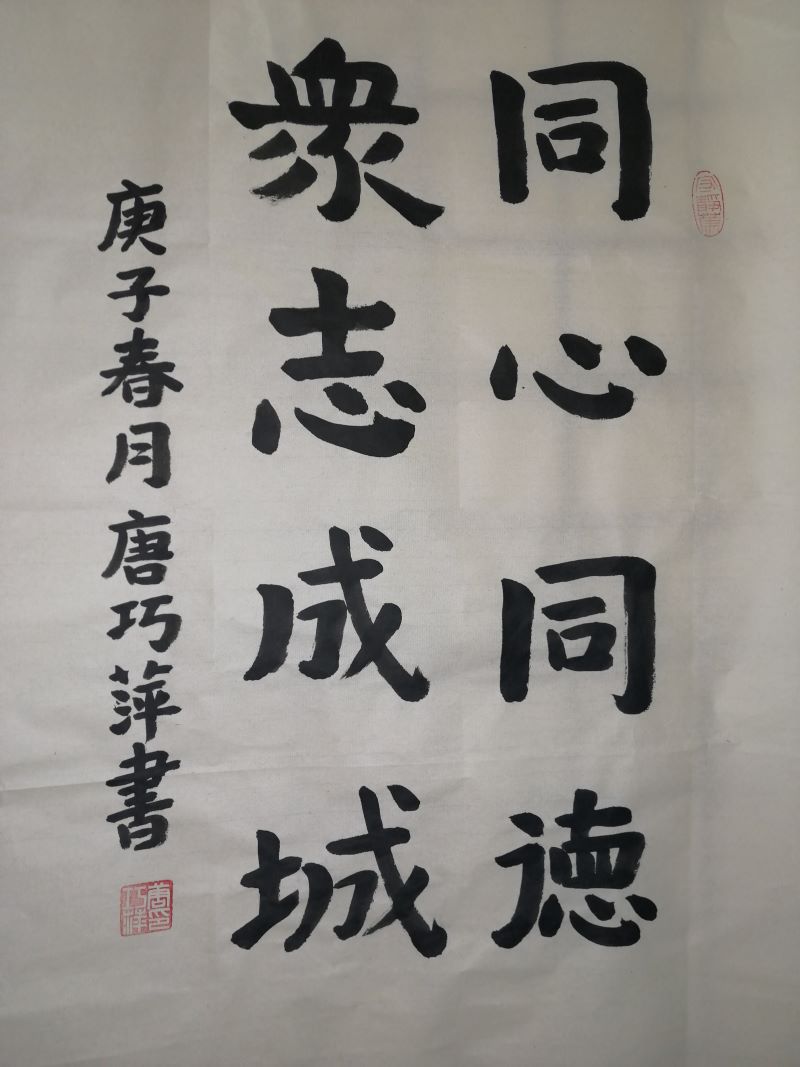 同心同德
衆志成城
庚子春月唐巧萍書
唐巧萍印